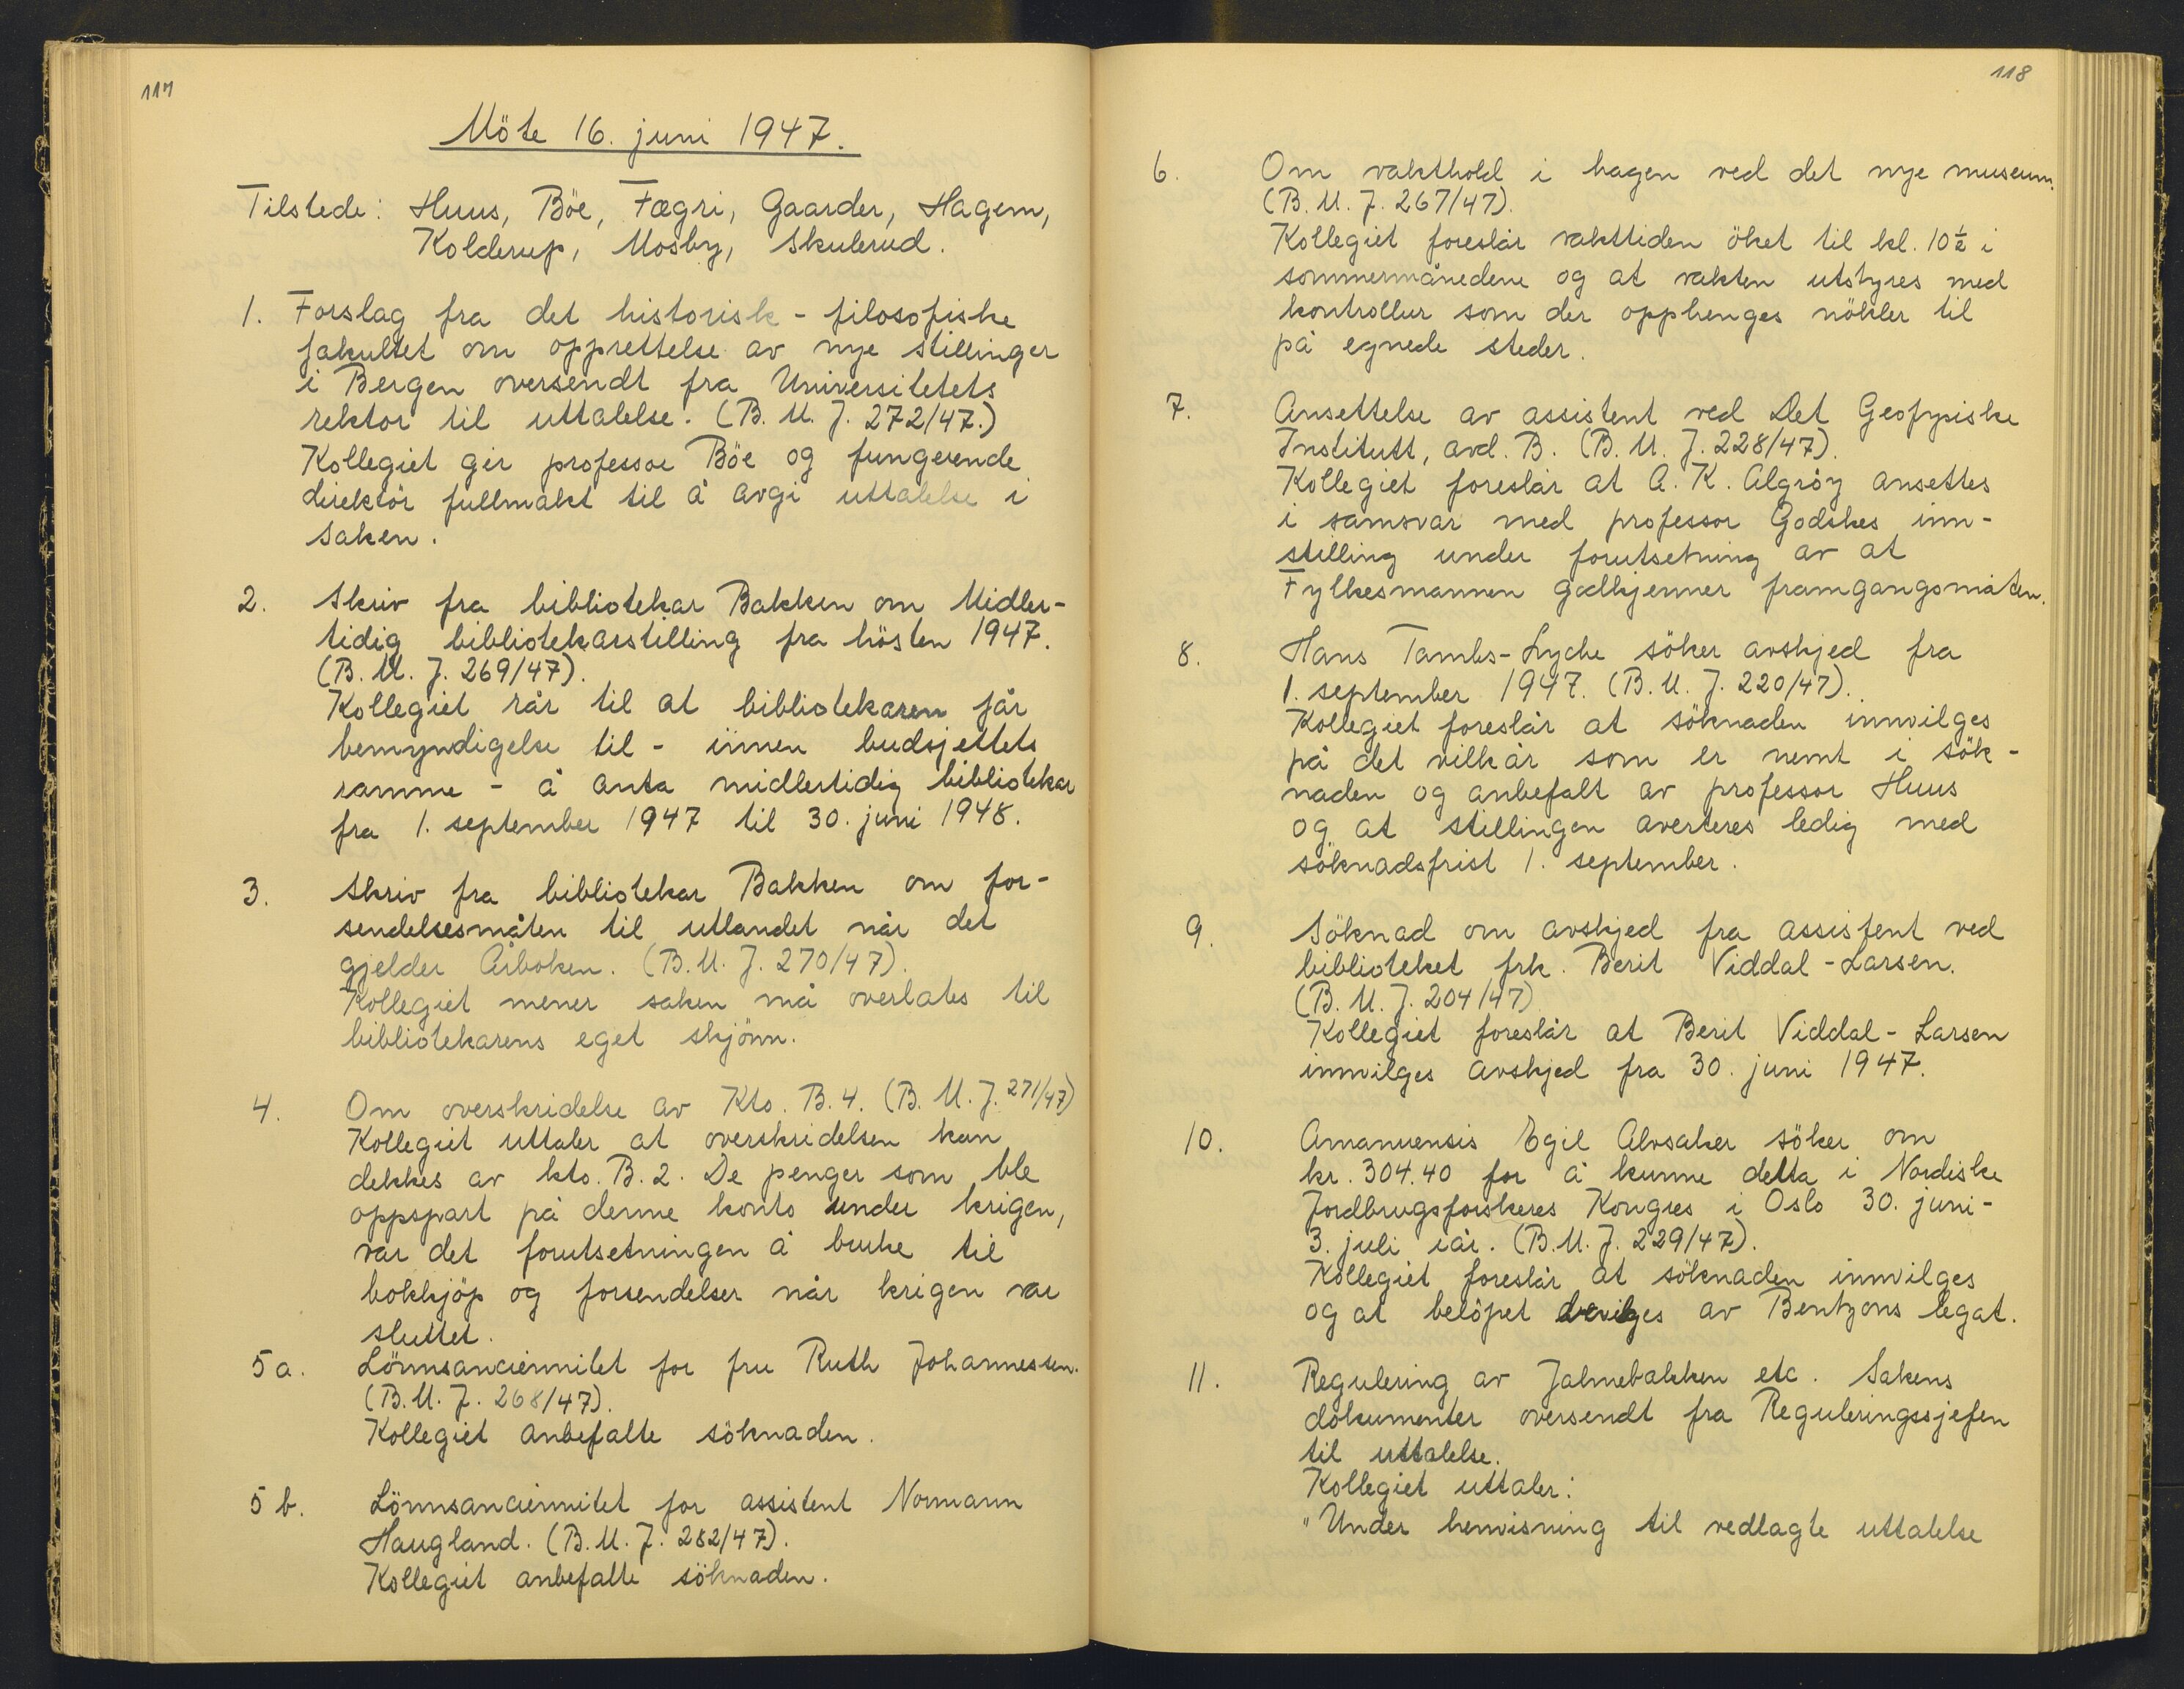 117
Möte 16. juni 1947.
Tilstede: Huus, Böe, Fægri, Gaarder, Hagem,
Kolderup, Mosby, Skulerud.
1. Forslag fra det historisk-filosofiske
fakultet om opprettelse av nye stillinger
i Bergen oversendt fra Universitetets
rektor til uttalelse. (B. U. J. 272/47.)
Kollegiet gir professor Böe og fungerende
direktör fullmakt til å avgi uttalelse i
saken.
2. Skriv fra bibliotekar Bakken om Midler-
tidig bibliotekarstilling fra hösten 1947.
(B. U. J. 269/47).
Kollegiet rår til at bibliotekaren får
bemyndigelse til - innen budsjettets
ramme - å anta midlertidig bibliotekar
fra 1. september 1947 til 30. juni 1948.
3. Skriv fra bibliotekar Bakken om for-
sendelsesmåten til utlandet når det
gjelder Årboken. (B. U. J. 270/47).
Kollegiet mener saken må overlates til
bibliotekarens eget skjönn.
4. Om overskridelse av Kto. B. 4. (B. U. J. 271/47)
Kollegiet uttaler at overskridelsen kan
dekkes av kto. B. 2. De penger som ble
oppspart på denne konto under krigen,
var det forutsetningen å bruke til
bokkjöp og forsendelser når krigen var
sluttet.
5a. Lönnsansiennitet for fru Ruth Johannessen.
(B. U. J. 268/47).
Kollegiet anbefalte söknaden.
5b. Lönnsansiennitet for assistent Normann
Haugland. (B. U. J. 282/47).
Kollegiet anbefalte söknaden.
118
6. Om vakthold i hagen ved det nye museum.
(B. U. J. 267/47).
Kollegiet foreslår vakttiden öket til kl. 10½ i
sommermånedene og at vakten utstyres med
kontrollur som der opphenges nökler til
på egnede steder.
7. Ansettelse av assistent ved Det Geofysiske
Institutt, avd. B. (B. U. J. 228/47).
Kollegiet foreslår at A. K. Algröy ansettes
i samsvar med professor Godskes inn-
stilling under forutsetning av at
Fylkesmannen godkjenner framgangsmåten.
8. Hans Tambs-Lyche söker avskjed fra
1. september 1947. (B. U. J. 220/47).
Kollegiet foreslår at söknaden innvilges
på det vilkår som er nemt i sök-
naden og anbefalt av professor Huus
og at stillingen averteres ledig med
söknadsfrist 1. september.
9. Söknad om avskjed fra assistent ved
biblioteket frk. Berit Viddal-Larsen.
(B. U. J. 204/47)
Kollegiet foreslår at Berit Viddal-Larsen
innvilges avskjed fra 30. juni 1947.
10. Amanuensis Egil Alvsaker söker om
kr. 304.40 for å kunne delta i Nordiske
Jordbrugsforskeres Kongres i Oslo 30. juni-
3. juli iår. (B. U. J. 229/47).
Kollegiet foreslår at söknaden innvilges
og at belöpet bevilges av Bentzons legat.
11. Regulering av Jahnebakken etc. Sakens
dokumenter oversendt fra Reguleringssjefen
til uttalelse.
Kollegiet uttaler:
"Under henvisning til vedlagte uttalelse